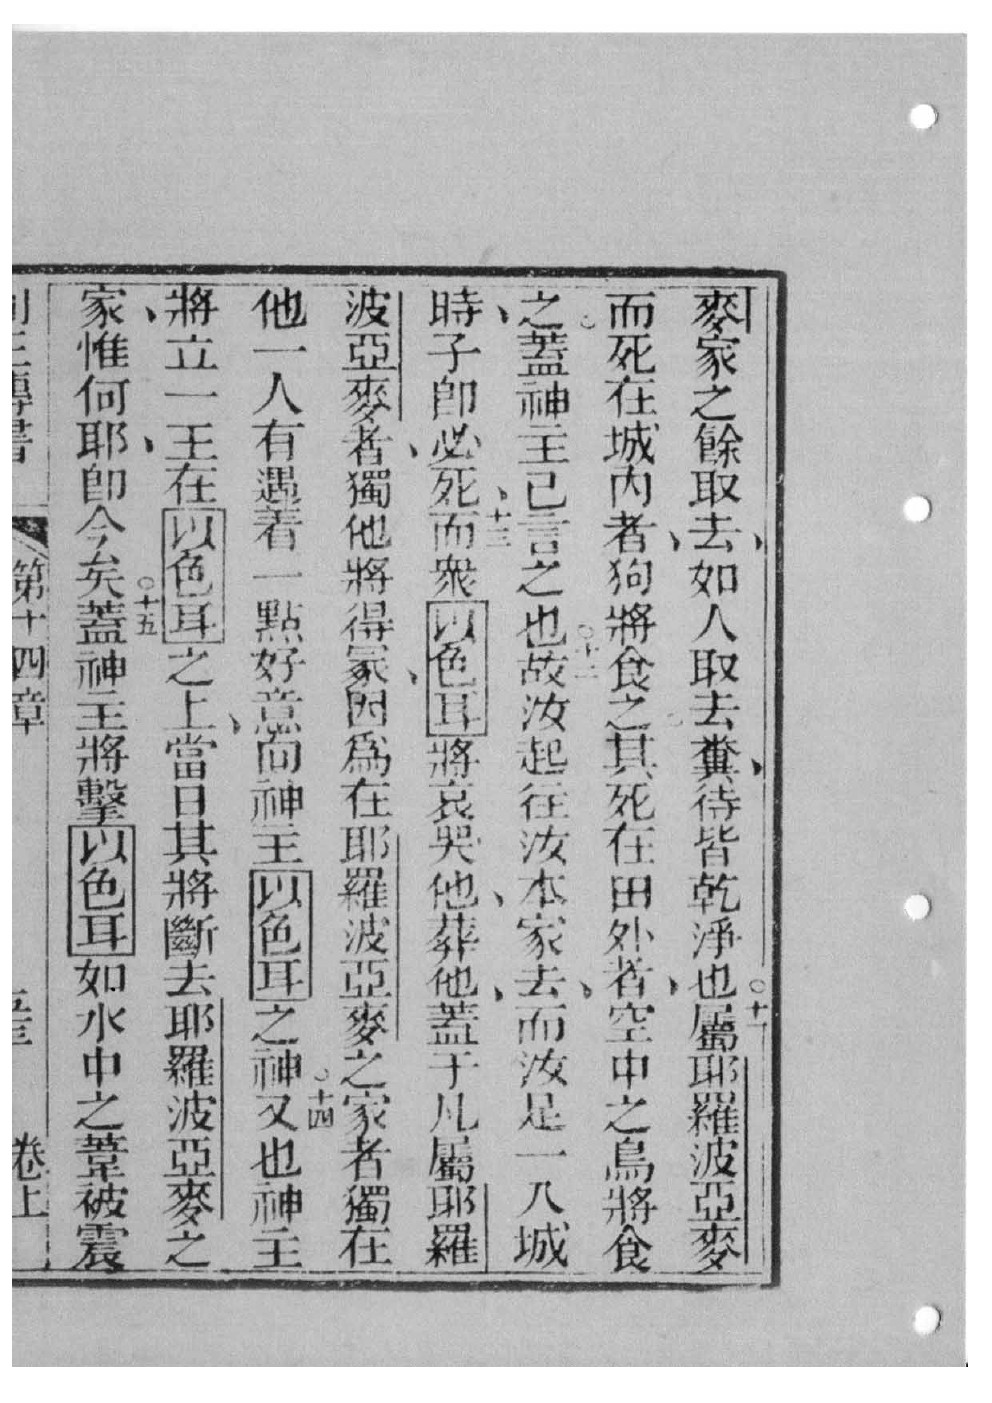 麥家之餘取去如人取去糞待皆乾淨也○十一屬耶羅波亞麥
而死在城內者狗將食之其死在田外者空中之鳥將食
之蓋神主已言之也○十二故汝起往汝本家去而汝足一入城
時子卽必死○十三而衆以色耳將哀哭他葬他蓋于凡屬耶羅
波亞麥者獨他將得冢因爲在耶羅波亞麥之家者獨在
他一人有遇着一點好意向神主以色耳之神○十四又也神主
將立一王在以色耳之上當日其將斷去耶羅波亞麥之
家惟何耶卽今矣○十五蓋神主將擊以色耳如水中之葦被震
列王傳書 第十四章 卷上